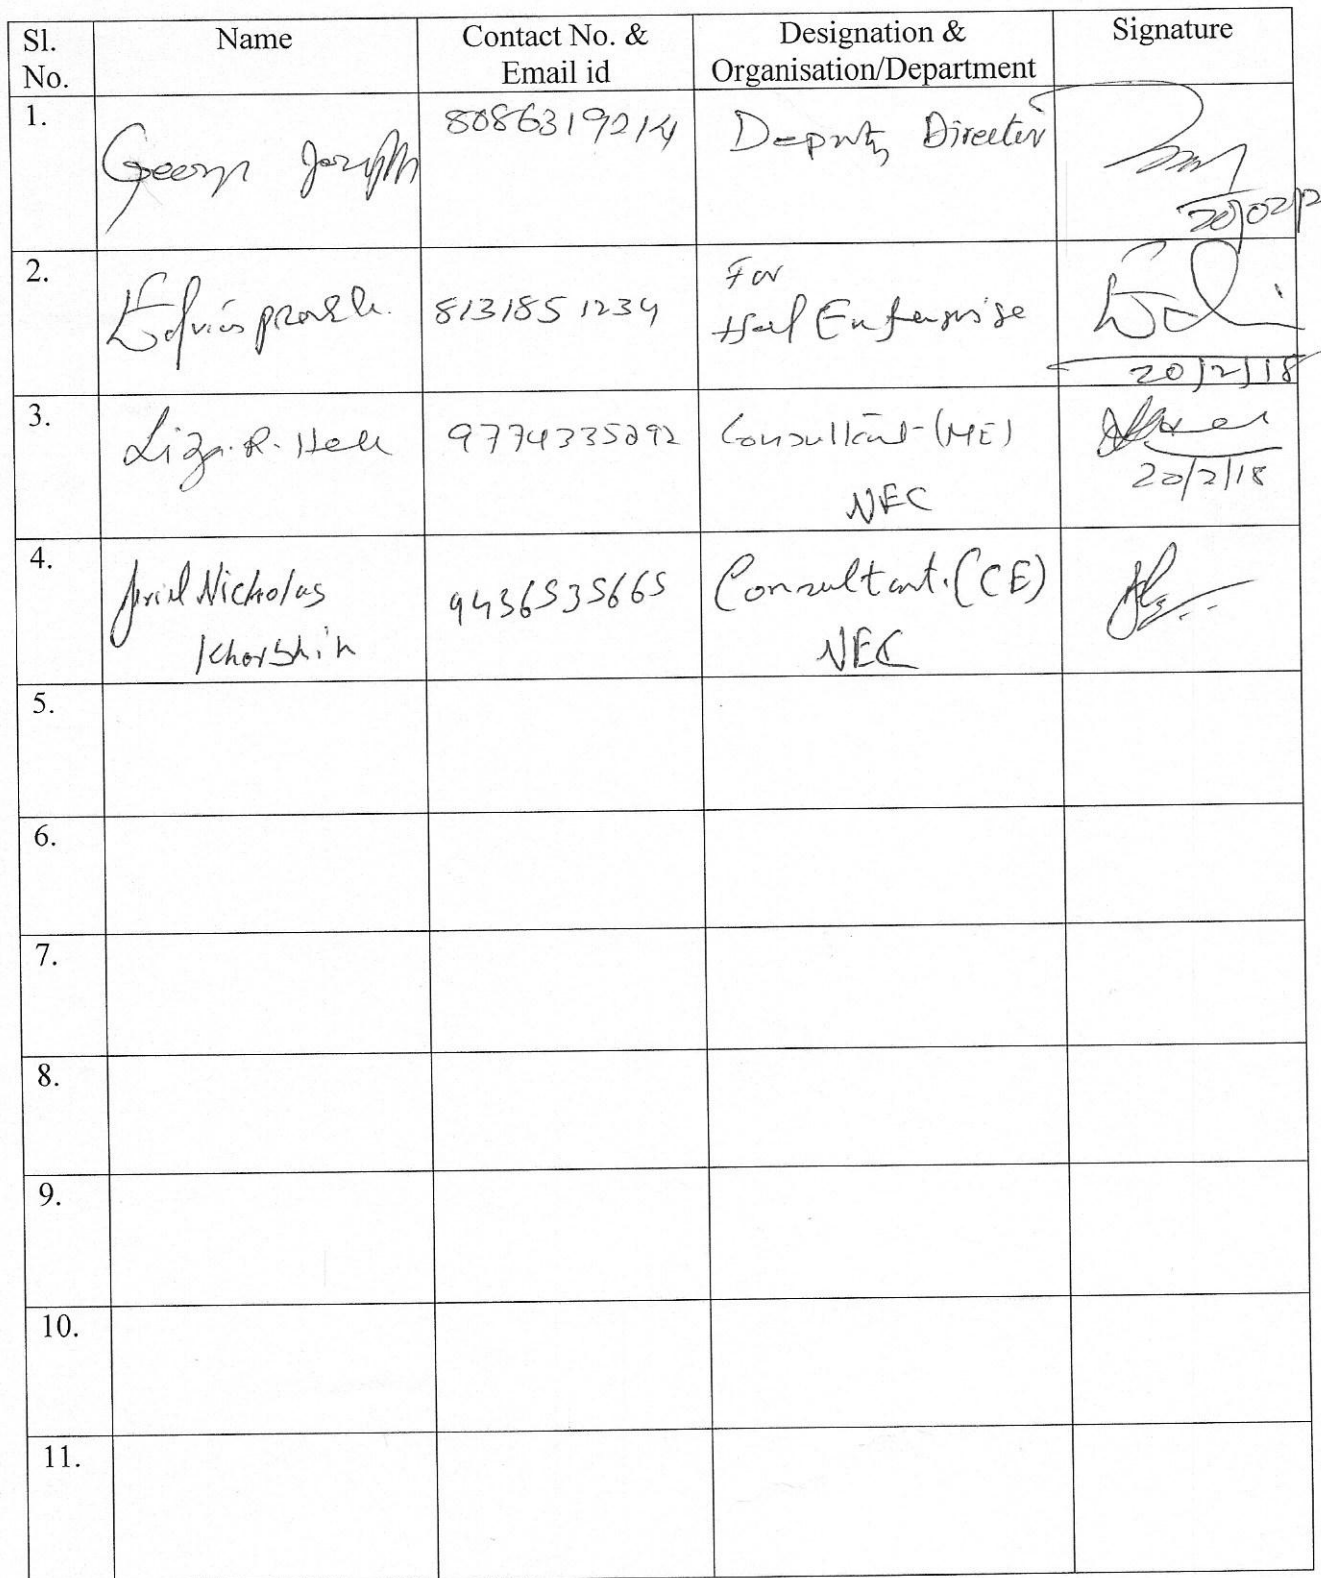 Sl. No.
Name
Contact No. &
Email id
Designation &
Organisation/Department
Signature
1.
George Joseph
8086319214
Deputy Director
20/02/
2.
8131851234
For
Enterprise
20/2/18
3.
Liza. R.
Consultant (ME)
NEC
20/2/18
4.
Nicholas
9436535665
Consultant. (CE)
NEC
5.
6.
7.
8.
9.
10.
11.